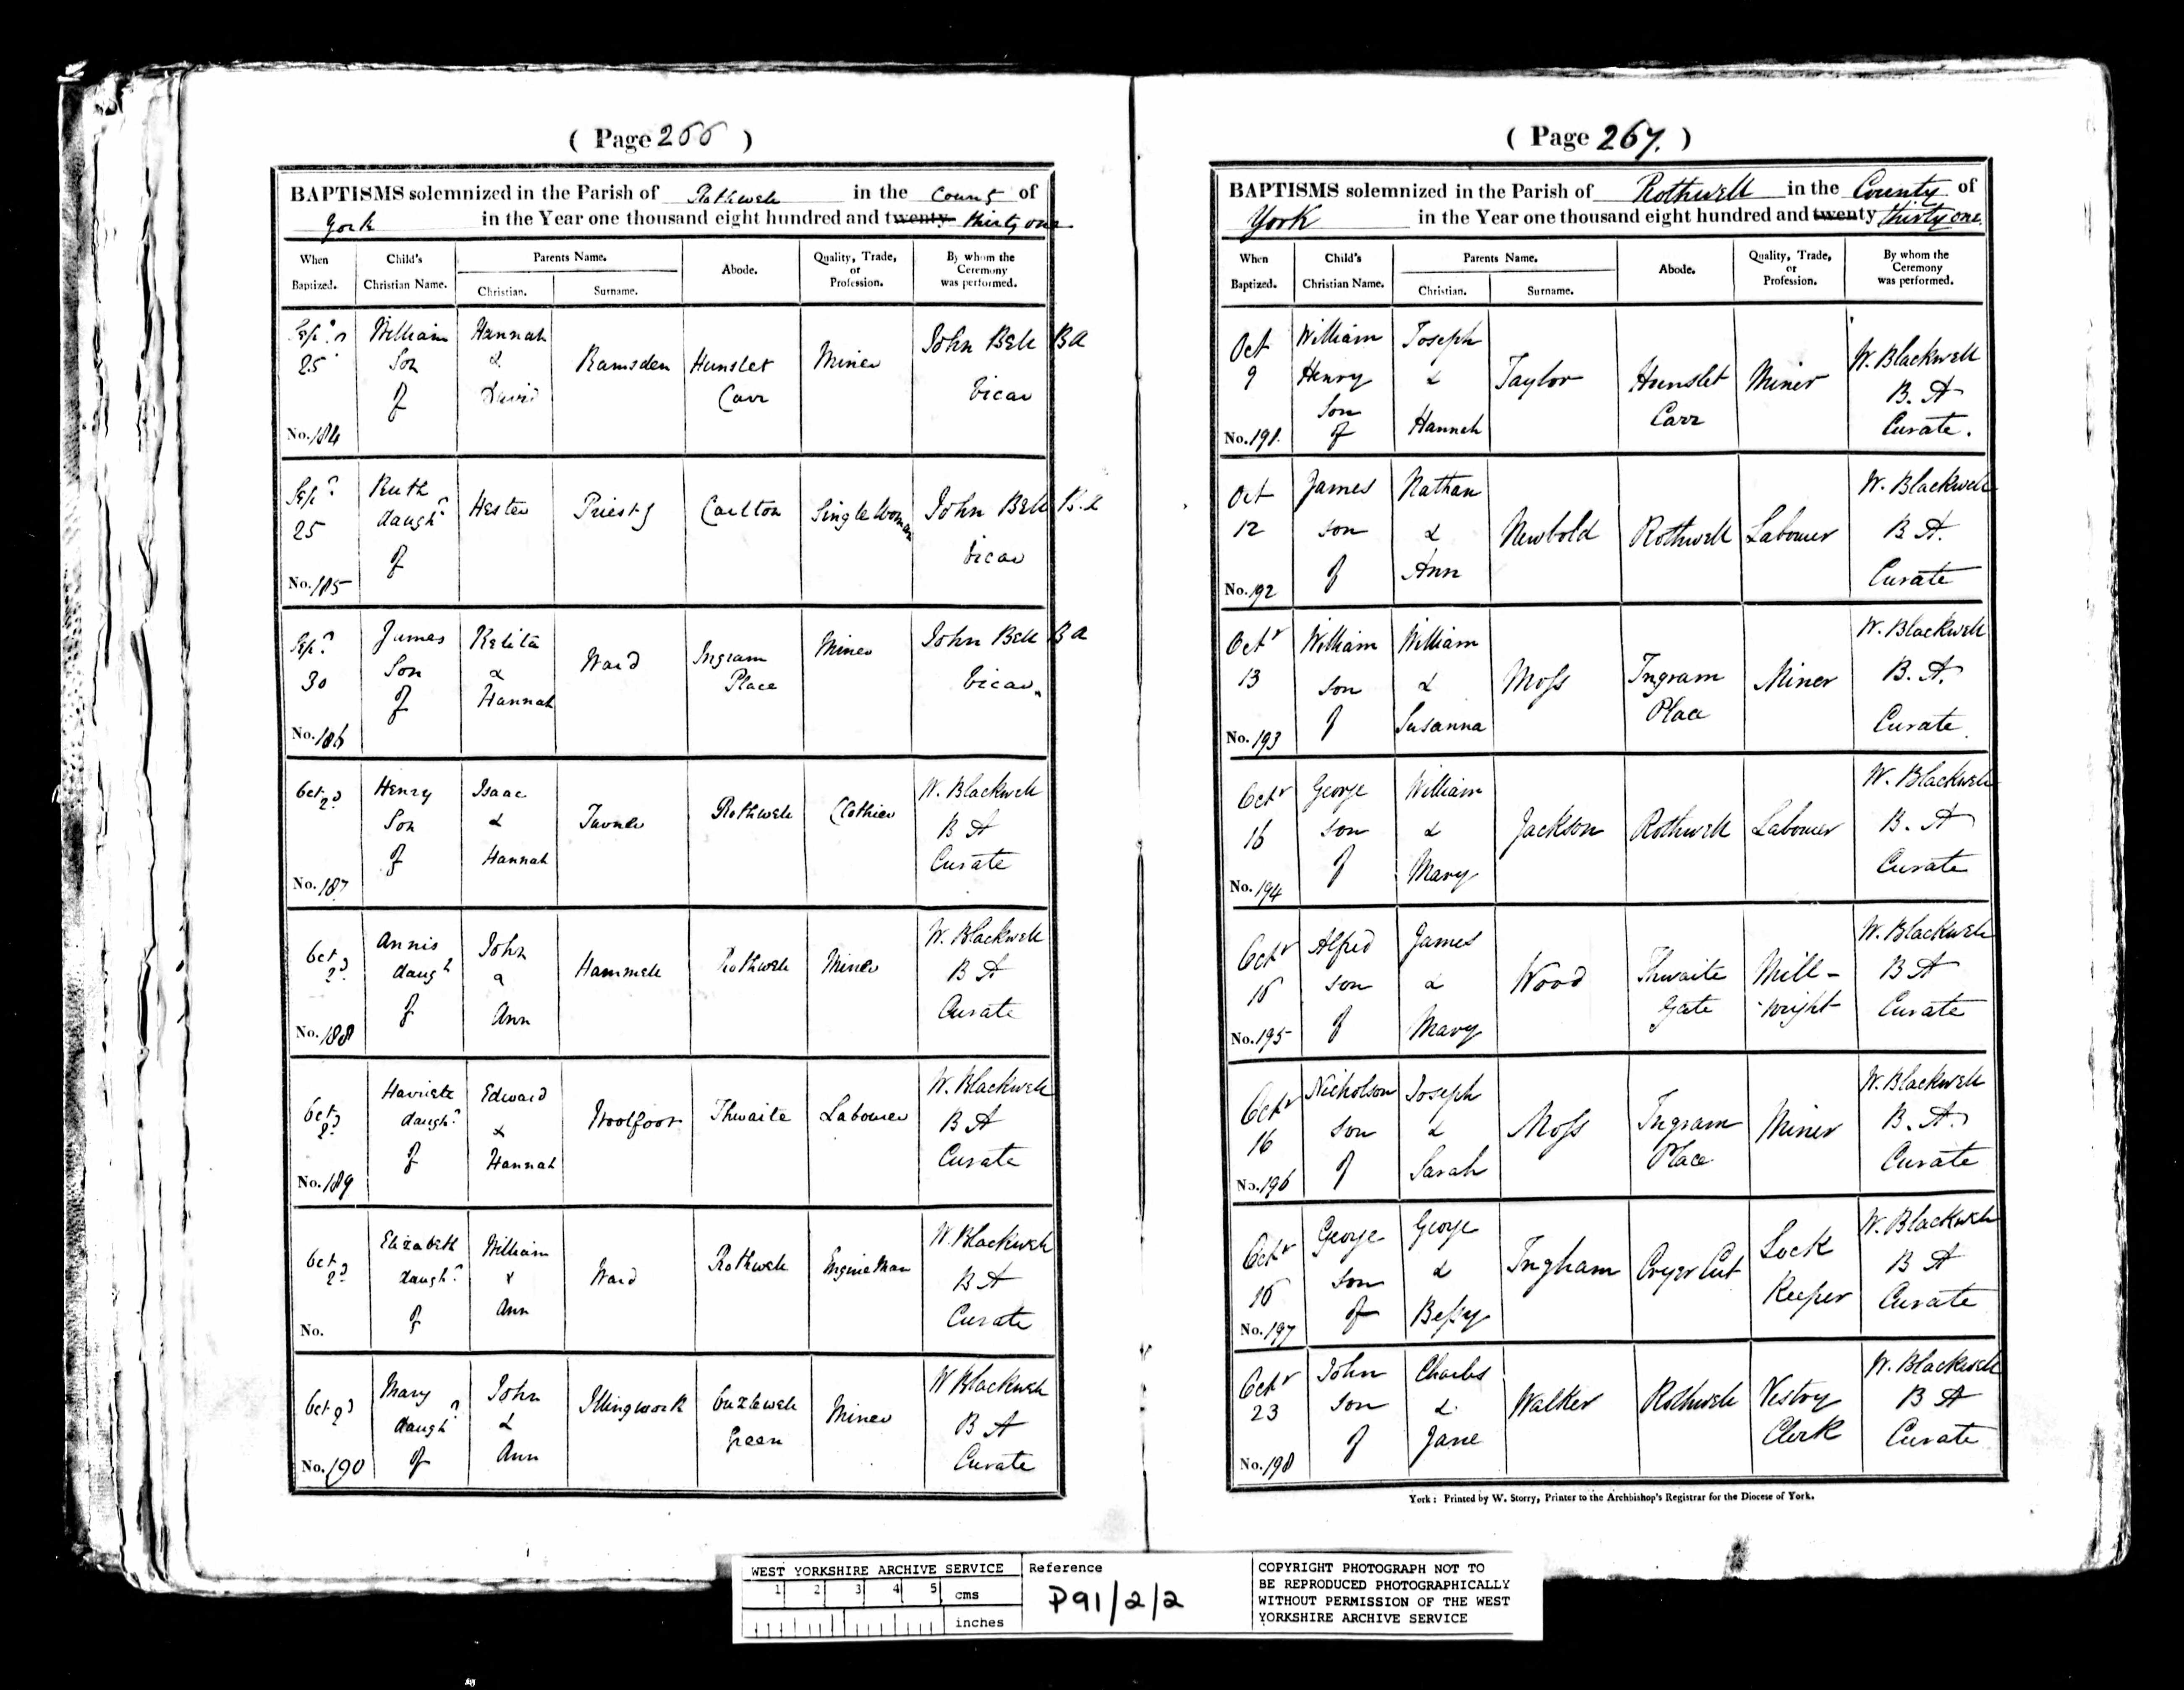 ( Page 266 )
BAPTISMS solemnized in the Parish of Rothwell in the County of
York in the Year one thousand eight hundred and twenty thirty one
When Baptized. Child's Christian Name. Parents Name. Christian. Surname. Abode. Quality, Trade, or Profession. By whom the Ceremony was performed.
Sepr 25 No. 184 William Son of Hannah & David Ramsden Hunslet Carr Miner John Bell BA Vicar
Sepr 25 No. 185 Ruth daughr of Hester Carlton Single Woman John Bell B.A Vicar
Sepr 30 No. 186 James Son of Kelita & Hannah Ward Ingram Place Miner John Bell BA Vicar
Oct 2d No. 187 Henry Son of Isaac & Hannah Rothwell Clothier W. Blackwell B A Curate
Oct 2d No. 188 Annis daughr of John & Ann Hammell Rothwell Miner W. Blackwell B A Curate
Oct 2d No. 189 Harriete daughr of Edward & Hannah Woolfoot Thwaite Labourer W. Blackwell B A Curate
Oct 2d No. Elizabeth daughr of William & Ann Ward Rothwell Engine Man W. Blackwell B A Curate
Oct 2d No. 190 Mary daughr of John & Ann Illingwork Green Miner W Blackwell B A Curate
( Page 267. )
BAPTISMS solemnized in the Parish of Rothwell in the County of
York in the Year one thousand eight hundred and twenty thirty one.
When Baptized. Child's Christian Name. Parents Name. Christian. Surname. Abode. Quality, Trade, or Profession. By whom the Ceremony was performed.
Oct 9 No. 191. William Henry Son of Joseph & Hannah Taylor Hunslet Carr Miner W. Blackwell B. A Curate.
Oct 12 No. 192 James son of Nathan & Ann Newbold Rothwell Labourer W. Blackwell B A. Curate
Octr 13 No. 193 William son of William & Susanna Moss Ingram Place Miner W. Blackwell B. A. Curate
Octr 16 No. 194 George son of William & Mary Jackson Rothwell Labourer W. Blackwell B. A Curate
Octr 16 No. 195 Alfred son of James & Mary Wood Thwaite Gate Mill-wright W. Blackwell B A Curate
Octr 16 No. 196 Nicholson son of Joseph & Sarah Moss Ingram Place Miner W. Blackwell B. A. Curate
Octr 16 No. 197 George son of George & Bessy Ingham Cryer Cut Lock Keeper W. Blackwell B A Curate
Octr 23 No. 198 John son of Charles & Jane Walker Rothwell Vestry Clerk W. Blackwell B A Curate
York: Printed by W. Storry, Printer to the Archbishop's Registrar for the Diocese of York.
WEST YORKSHIRE ARCHIVE SERVICE
1 2 3 4 5 cms
inches
Reference
P91/2/2
COPYRIGHT PHOTOGRAPH NOT TO
BE REPRODUCED PHOTOGRAPHICALLY
WITHOUT PERMISSION OF THE WEST
YORKSHIRE ARCHIVE SERVICE